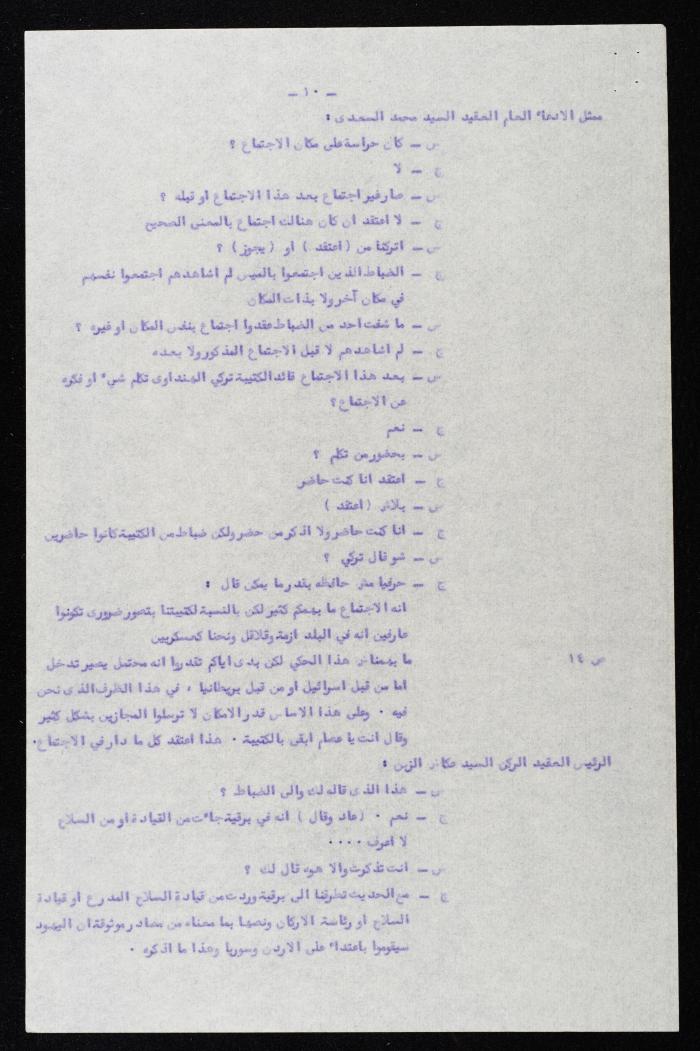 – ١٠ –
ممثل الادعاء العام العقيد السيد محمد السعدى :
س – كان حراسة على مكان الاجتماع ؟
ج – لا
س – صار غير اجتماع بعد هذا الاجتماع او قبله ؟
ج – لا اعتقد ان كان هنالك اجتماع بالمعنى الصحيح
س – اتركنا من ( اعتقد ) او ( يجوز ) ؟
ج – الضباط الذين اجتمعوا بالميس لم اشاهدهم اجتمعوا نفسهم
في مكان آخر ولا بذات المكان
س – ما شفت احد من الضباط عقدوا اجتماع بنفس المكان او غيره ؟
ج – لم اشاهدهم لا قبل الاجتماع المذكور ولا بعده
س – بعد هذا الاجتماع قائد الكتيبة تركي الهنداوى تكلم شيء او فكره
عن الاجتماع ؟
ج – نعم
س – بحضور من تكلم ؟
ج – اعتقد انا كنت حاضر
س – بلاش ( اعتقد )
ج – انا كنت حاضر ولا اذكر من حضر ولكن ضباط من الكتيبة كانوا حاضرين
س – شو قال تركي ؟
ج – حرفيا مش حافظه بقدر ما يمكن قال :
انه الاجتماع ما بهمكم كثير لكن بالنسبة لكتيبتنا بتصور ضرورى تكونوا
عارفين انه في البلد ازمة وقلاقل ونحنا كعسكريين
ص ١٤ ما بهمناش هذا الحكي لكن بدى اياكم تقدروا انه محتمل يصير تدخل
اما من قبل اسرائيل او من قبل بريطانيا ، في هذا الظرف الذى نحن
فيه . وعلى هذا الاساس قدر الامكان لا ترسلوا المجازين بشكل كثير
وقال انت يا عصام ابقى بالكتيبة . هذا اعتقد كل ما دار في الاجتماع .
الرئيس العقيد الركن السيد عكاش الزبن :
س – هذا الذى قاله لك والى الضباط ؟
ج – نعم . ( عاد وقال ) انه في برقية جاءت من القيادة او من السلاح
لا اعرف ....
س – انت تذكرت والا هوه قال لك ؟
ج – مع الحديث تطرقنا الى برقية وردت من قيادة السلاح المدرع او قيادة
السلاح او رئاسة الاركان ونصها بما معناه من مصادر موثوقة ان اليهود
سيقوموا باعتداء على الاردن وسوريا وهذا ما اذكره .